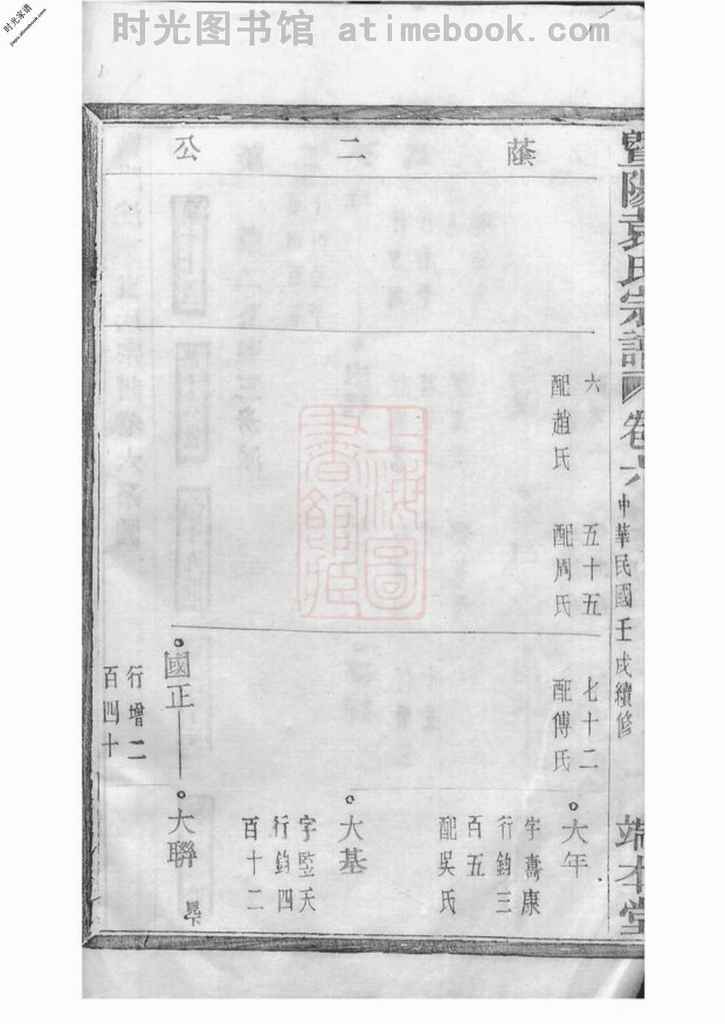 时光家谱
jiapu.atimebook.com
时光图书馆 atimebook.com
暨陽袁氏宗譜
卷六
中華民國壬戌續修
端本堂
蔭二公
六
配趙氏
五十五
配周氏
七十二
配傅氏
大年
字壽康
行鈞三
百五
配吳氏
大基
字監天
行鈞四
百十二
國正
行增二
百四十
大聯
上海图書館藏